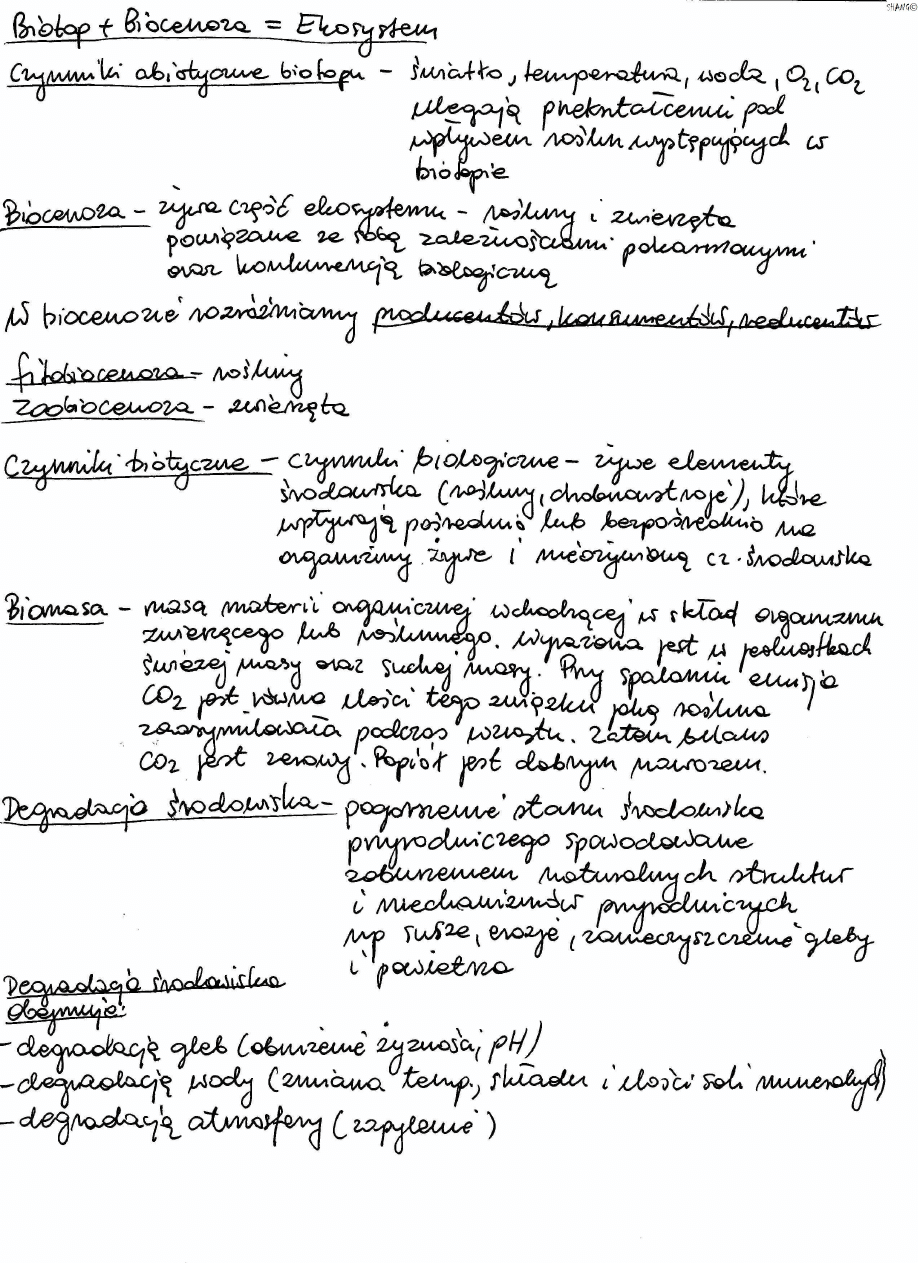 SHANG©
Biotop + Biocenoza = Ekosystem
Czynniki abiotyczne biotopu - światło, temperatura, woda, O2, CO2
ulegają przekształceniu pod
wpływem roślin występujących w
biotopie
Biocenoza - żywa część ekosystemu - rośliny i zwierzęta
powiązane ze sobą zależnościami pokarmowymi
oraz konkurencją biologiczną
W biocenozie rozróżniamy producentów, konsumentów, reducentów
fitobiocenoza - rośliny
zoobiocenoza - zwierzęta
Czynniki biotyczne - czynniki biologiczne - żywe elementy
środowiska (rośliny, drobnoustroje), które
wpływają pośrednio lub bezpośrednio na
organizmy żywe i nieożywioną cz. środowiska
Biomasa - masa materii organicznej wchodzącej w skład organizmu
zwierzęcego lub roślinnego. Wyrażona jest w jednostkach
świeżej masy oraz suchej masy. Przy spalaniu emisja
CO2 jest równa ilości tego związku jaką roślina
zaasymilowała podczas wzrostu. Zatem bilans
CO2 jest zerowy. Popiół jest dobrym nawozem.
Degradacja środowiska - pogorszenie stanu środowiska
przyrodniczego spowodowane
zaburzeniem naturalnych struktur
i mechanizmów przyrodniczych
np susze, erozje, zanieczyszczenie gleby
i powietrza
Degradacja środowiska
obejmuje:
- degradację gleb (obniżenie żyzności, pH)
- degradację wody (zmiana temp., składu i ilości soli mineralnych)
- degradację atmosfery (zapylenie)